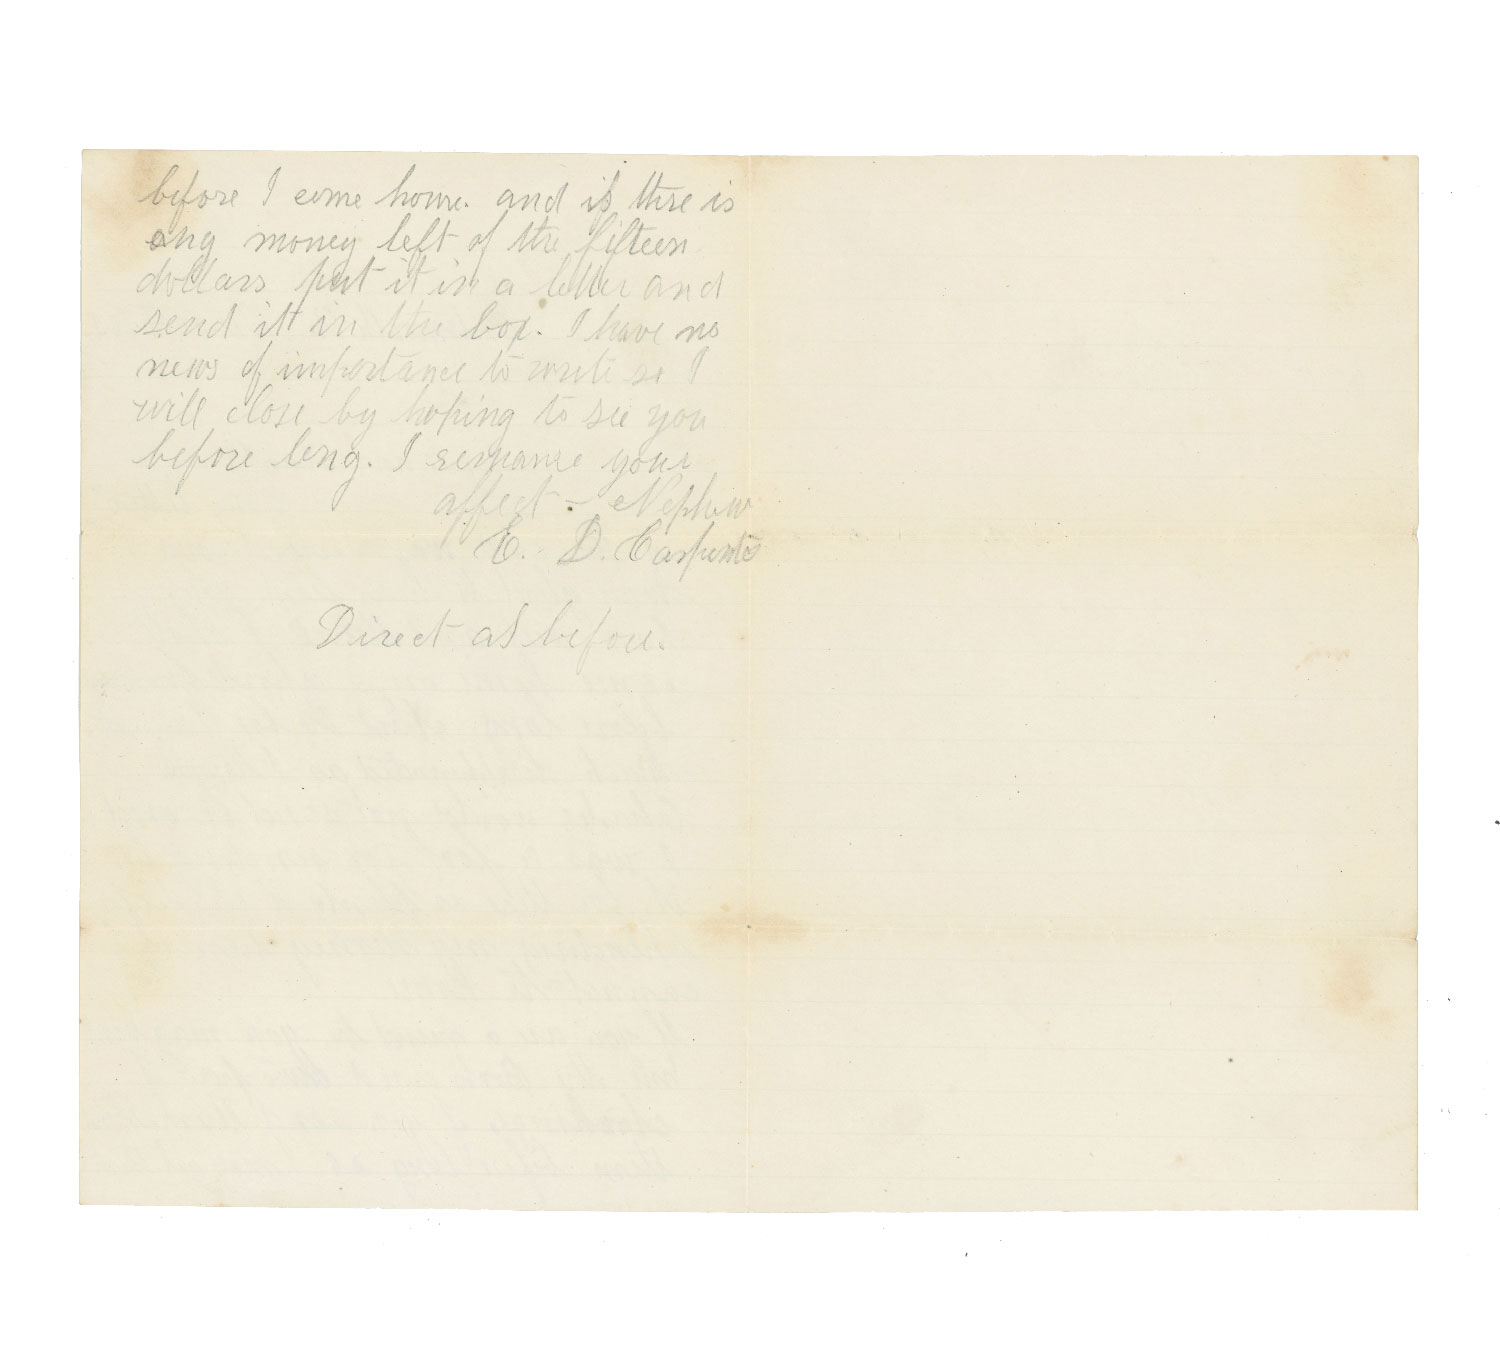 before I come home. and if there is
any money left of the fifteen
dollars put it in a letter and
send it in the box. I have no
news of importance to write so I
will close by hoping to see you
before long. I remane your
affect - Nephew
E. D. Carpenter
Direct as before.